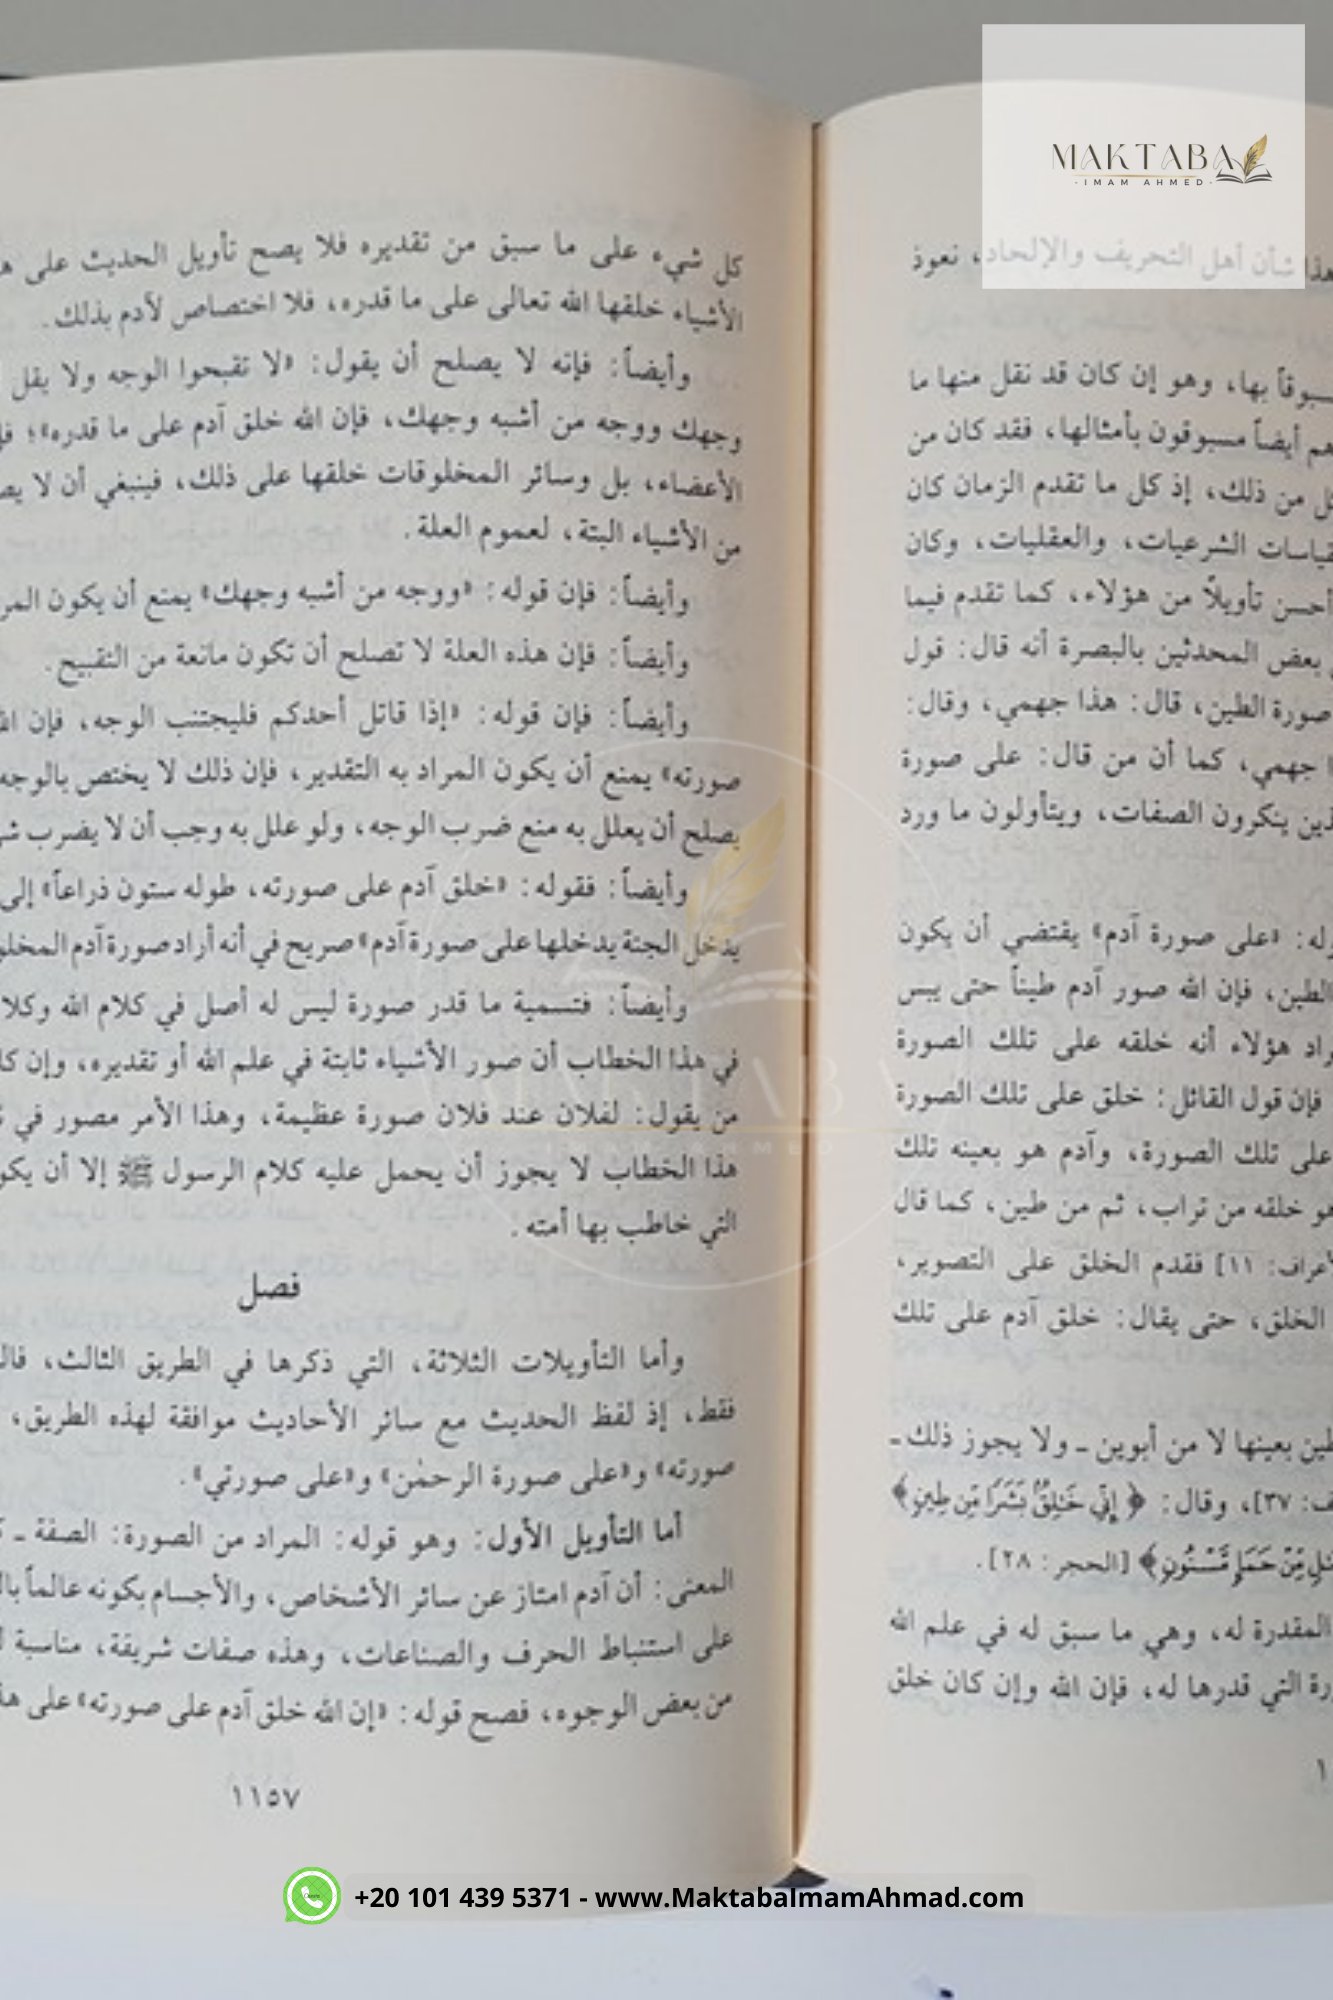 MAKTABA
· IMAM AHMED ·
هذا شأن أهل التحريف والإلحاد، نعوذ
بها، وهو إن كان قد نقل منها ما
هم أيضاً مسبوقون بأمثالها، فقد كان من
من ذلك، إذ كل ما تقدم الزمان كان
الشرعيات، والعقليات، وكان
أحسن تأويلاً من هؤلاء، كما تقدم فيما
بعض المحدثين بالبصرة أنه قال: قول
صورة الطين، قال: هذا جهمي، وقال:
جهمي، كما أن من قال: على صورة
ينكرون الصفات، ويتأولون ما ورد
«على صورة آدم» يقتضي أن يكون
الطين، فإن الله صور آدم طيناً حتى يبس
هؤلاء أنه خلقه على تلك الصورة
فإن قول القائل: خلق على تلك الصورة
على تلك الصورة، وآدم هو بعينه تلك
هو خلقه من تراب، ثم من طين، كما قال
١١] فقدم الخلق على التصوير،
الخلق، حتى يقال: خلق آدم على تلك
بعينها لا من أبوين ـ ولا يجوز ذلك ـ
٣٧]، وقال: ﴿إِنِّي خَٰلِقٌۢ بَشَرًا مِّن طِينٍ﴾
مِّنْ حَمَإٍ مَّسْنُونٍ﴾ [الحجر: ٢٨].
المقدرة له، وهي ما سبق له في علم الله
التي قدرها له، فإن الله وإن كان خلق
كل شيء على ما سبق من تقديره فلا يصح تأويل الحديث على
الأشياء خلقها الله تعالى على ما قدره، فلا اختصاص لآدم بذلك.
وأيضاً: فإنه لا يصلح أن يقول: «لا تقبحوا الوجه ولا يقل
وجهك ووجه من أشبه وجهك، فإن الله خلق آدم على ما قدره»؛
الأعضاء، بل وسائر المخلوقات خلقها على ذلك، فينبغي أن لا
من الأشياء البتة، لعموم العلة.
وأيضاً: فإن قوله: «ووجه من أشبه وجهك» يمنع أن يكون
وأيضاً: فإن هذه العلة لا تصلح أن تكون مانعة من التقبيح.
وأيضاً: فإن قوله: «إذا قاتل أحدكم فليجتنب الوجه، فإن
صورته» يمنع أن يكون المراد به التقدير، فإن ذلك لا يختص بالوجه
يصلح أن يعلل به منع ضرب الوجه، ولو علل به وجب أن لا يضرب
وأيضاً: فقوله: «خلق آدم على صورته، طوله ستون ذراعاً» إلى
يدخل الجنة يدخلها على صورة آدم» صريح في أنه أراد صورة آدم
وأيضاً: فتسمية ما قدر صورة ليس له أصل في كلام الله
في هذا الخطاب أن صور الأشياء ثابتة في علم الله أو تقديره، وإن
من يقول: لفلان عند فلان صورة عظيمة، وهذا الأمر مصور في
هذا الخطاب لا يجوز أن يحمل عليه كلام الرسول ﷺ إلا أن
التي خاطب بها أمته.
فصل
وأما التأويلات الثلاثة، التي ذكرها في الطريق الثالث،
فقط، إذ لفظ الحديث مع سائر الأحاديث موافقة لهذه الطريق،
صورته» و«على صورة الرحمٰن» و«على صورتي».
أما التأويل الأول: وهو قوله: المراد من الصورة: الصفة ـ
المعنى: أن آدم امتاز عن سائر الأشخاص، والأجسام بكونه عالماً
على استنباط الحرف والصناعات، وهذه صفات شريفة، مناسبة
من بعض الوجوه، فصح قوله: «إن الله خلق آدم على صورته» على
١١٥٧
+20 101 439 5371 - www.MaktabaImamAhmad.com